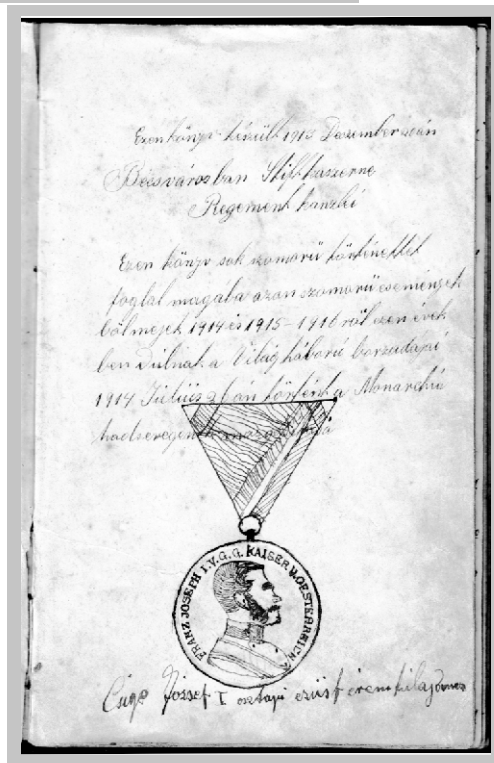 Ezen könyv készült 1915 Dezember
Bécsvárosban Stiftkaszerne
Regement kanzlei
Ezen könyv sok szomorú történettet
foglal magaba azon szomorú események
bölmejek 1914 és 1915-1916 ról ezen évek
ben dúlnak a Világ háború borzadajai
1914 Július án történt a Monarchia
hadseregének
FRANZ JOSEPH I. V. G. G. KAISER V. OESTERREICH
József I osztajú ezüst érem